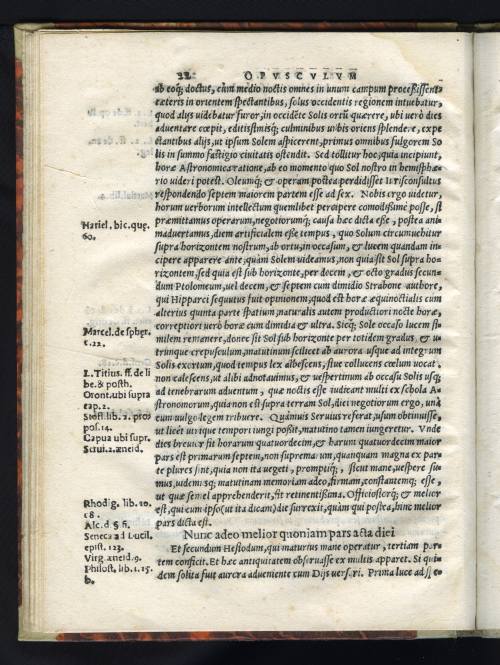 22 OPVSCVLVM
ab eoq; doctus, cùm medio noctis omnes in unum campum proceßissent
cæteris in orientem spectantibus, solus occidentis regionem intuebatur,
quod alijs uidebatur furor, in occidēte Solis ortū quærere, ubi uerò dies
aduentare cœpit, editißimisq; culminibus urbis oriens splendere, expe
ctantibus alijs, ut ipsum Solem aspicerent, primus omnibus fulgorem So
lis in summo fastigio ciuitatis ostendit. Sed tollitur hoc, quia incipiunt,
horæ Astronomica ratione, ab eo momento quo Sol nostro in hemisphæ
rio uideri potest. Oleumq; & operam postea perdidisset Iurisconsultus
respondendo septem maiorem partem esse ad sex. Nobis ergo uidetur,
horum uerborum intellectum quemlibet percipere comodißimè posse, si
præmittamus operarum, negotiorumq; causa hæc dicta esse, postea ani
maduertamus, diem artificialem esse tempus, quo Solum circumuehitur
supra horizontem nostrum, ab ortu, in occasum, & lucem quandam in-
cipere apparere ante, quàm Solem uideamus, non quia sit Sol supra ho-
rizontem, sed quia est sub horizonte, per decem, & octo gradus secun-
dum Ptolomeum, uel decem, & septem cum dimidio Strabone authore,
qui Hipparci sequutus fuit opinionem, quod est horæ æquinoctialis cum
alterius quinta parte spatium, naturalis autem productiori nocte horæ,
correptiori uerò horæ cum dimidia & ultra. Sicq; Sole occaso lucem si-
milem remanere, donec sit Sol sub horizonte per totidem gradus, & u-
trunque crepusculum, matutinum scilicet ab aurora usque ad integrum
Solis exortum, quod tempus lex albescens, siue collucens cœlum uocat,
non calescens, ut alibi adnotauimus, & uespertinum ab occasu Solis usq;
ad tenebrarum aduentum, quæ noctis esse iudicant multi ex schola A-
stronomorum, quia non est supra terram Sol, diei negotiorum ergo, unà
cum uulgo legem tribuere. Quamuis Seruius referat, usum obtinuisse,
ut licèt utrique tempori iungi poßit, matutino tamen iungeretur. Vnde
dies breuior fit horarum quatuordecim, & harum quatuordecim maior
pars est primarum septem, non supremarum, quanquam magna ex par-
te plures sint, quia non ita uegeti, promptiq;, sicut mane, uespere su-
mus, uidemusq; matutinam memoriam adeo, firmam, constantemq; esse,
ut quæ semel apprehenderit, sit retinentißima. Officiosiorq; & melior
est, qui cum ipso (ut ita dicam) die surrexit, quàm qui postea, hinc melior
pars dicta est.
Nunc adeo melior quoniam pars acta diei
Et secundum Hesiodum, qui maturius mane operatur, tertiam par-
tem conficit. Et hæc antiquitatem obseruasse ex multis apparet. Si qui-
dem solita fuit aurora adueniente cum Dijs uersari. Prima luce ad
Hariel. bic. que.
60.
Marcel. de sphær.
c. 22.
L. Titius. ff. de li
be. & posth.
Oront. ubi supra
cap. 2.
Stoffl. lib. 2. pro
pos. 14.
Capua ubi supr.
Serui. 2. æneid.
Rhodig. lib. 20.
c 8.
Alc. d § fi.
Seneca ad Lucil.
epist. 123.
Virg. æneid. 9.
Philost. lib. 1. 15.
b.